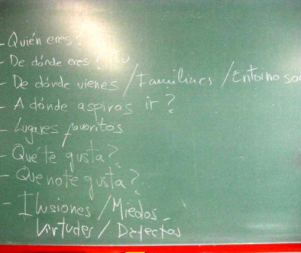 - Quién eres?
- De dónde eres?
- De dónde vienes / Familiares / Entorno so
- A dónde aspiras ir?
- Lugares favoritos
- Que te gusta?
- Que no te gusta?
- Ilusiones / Miedos
Virtudes / Defectos